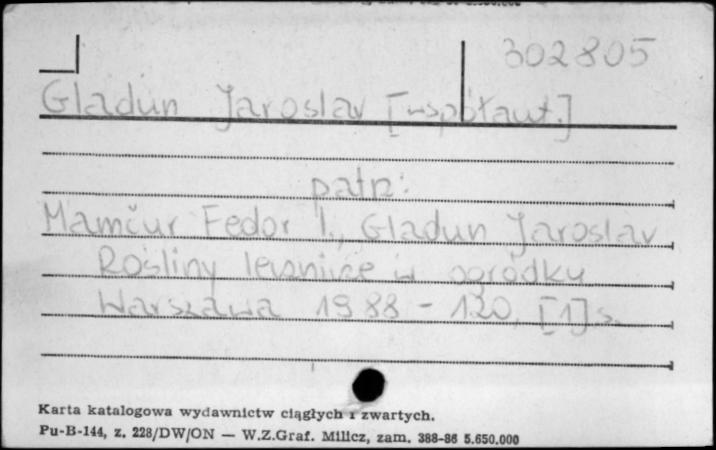 302805
Gladun Jaroslav [współaut.]
patrz:
Mamčur Fedor I., Gladun Jaroslav
Rośliny lecznicze w ogródku
Warszawa 1988 - 120, [1] s.
Karta katalogowa wydawnictw ciągłych i zwartych.
Pu-B-144, z. 228/DW/ON — W.Z.Graf. Milicz, zam. 388-86 5.650.000